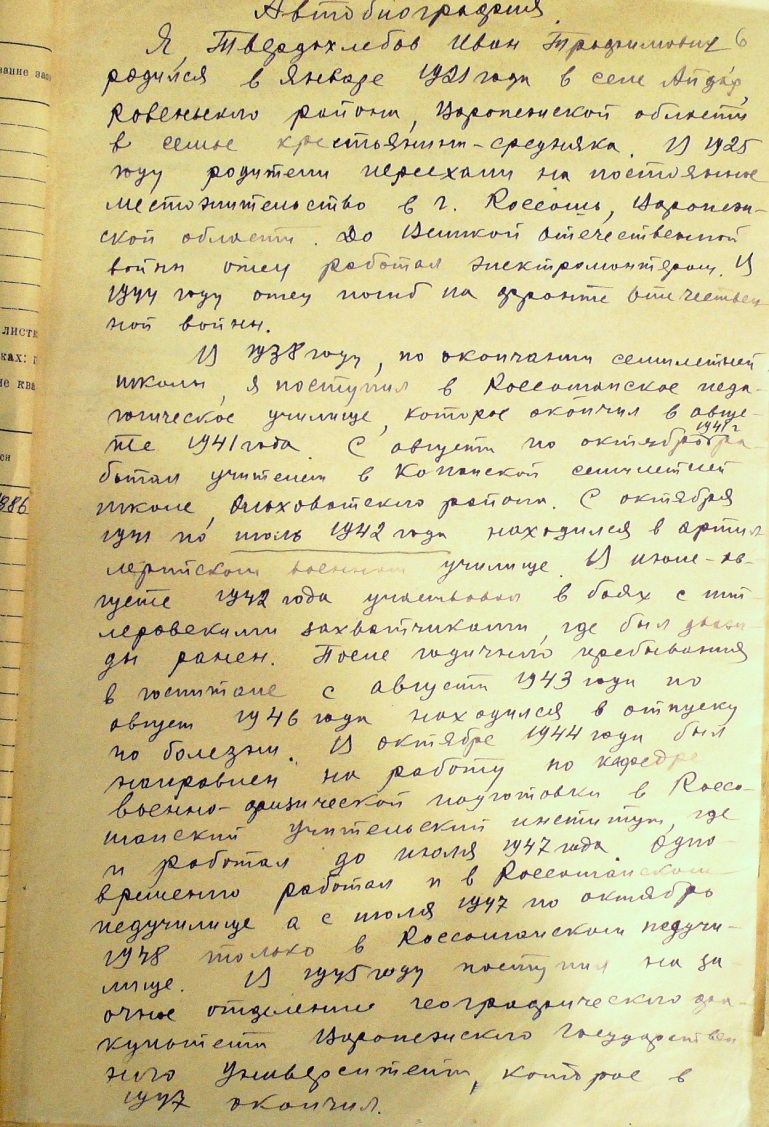 Автобиография.
Я, Твердохлебов Иван Трофимович 6
родился в январе 1921 года в селе Айдар,
Ровеньского района, Воронежской области
в семье крестьянина-середняка. В 1925
году родители переехали на постоянное
местожительство в г. Россошь, Воронеж-
ской области. До Великой отечественной
войны отец работал электромонтером. В
1944 году отец погиб на фронте Отечествен
ной войны.
В 1938 году, по окончании семилетней
школы, я поступил в Россошанское педа-
гогическое училище, которое окончил в авгу-
сте 1941 года. С августа по октябрь 1941 г ра-
ботал учителем в Копанской семилетней
школе, Ольховатского района. С октября
1941 по июль 1942 года находился в артил
лерийском военном училище. В июле-ав-
густе 1942 года участвовал в боях с гит
леровскими захватчиками, где был дваж-
ды ранен. После годичного пребывания
в госпитале с августа 1943 года по
август 1946 года находился в отпуску
по болезни. В октябре 1944 года был
направлен на работу по кафедре
военно-физической подготовки в Россо-
шанский Учительский институт, где
и работал до июля 1947 года. Одно-
временно работал и в Россошанском
педучилище а с июля 1947 по октябрь
1948 только в Россошанском педучи-
лище. В 1945 году поступил на за-
очное отделение географического фа-
культета Воронежского Государствен
ного Университета, которое в
1947 окончил.
вание
листк
ках:
не ква
си
1986